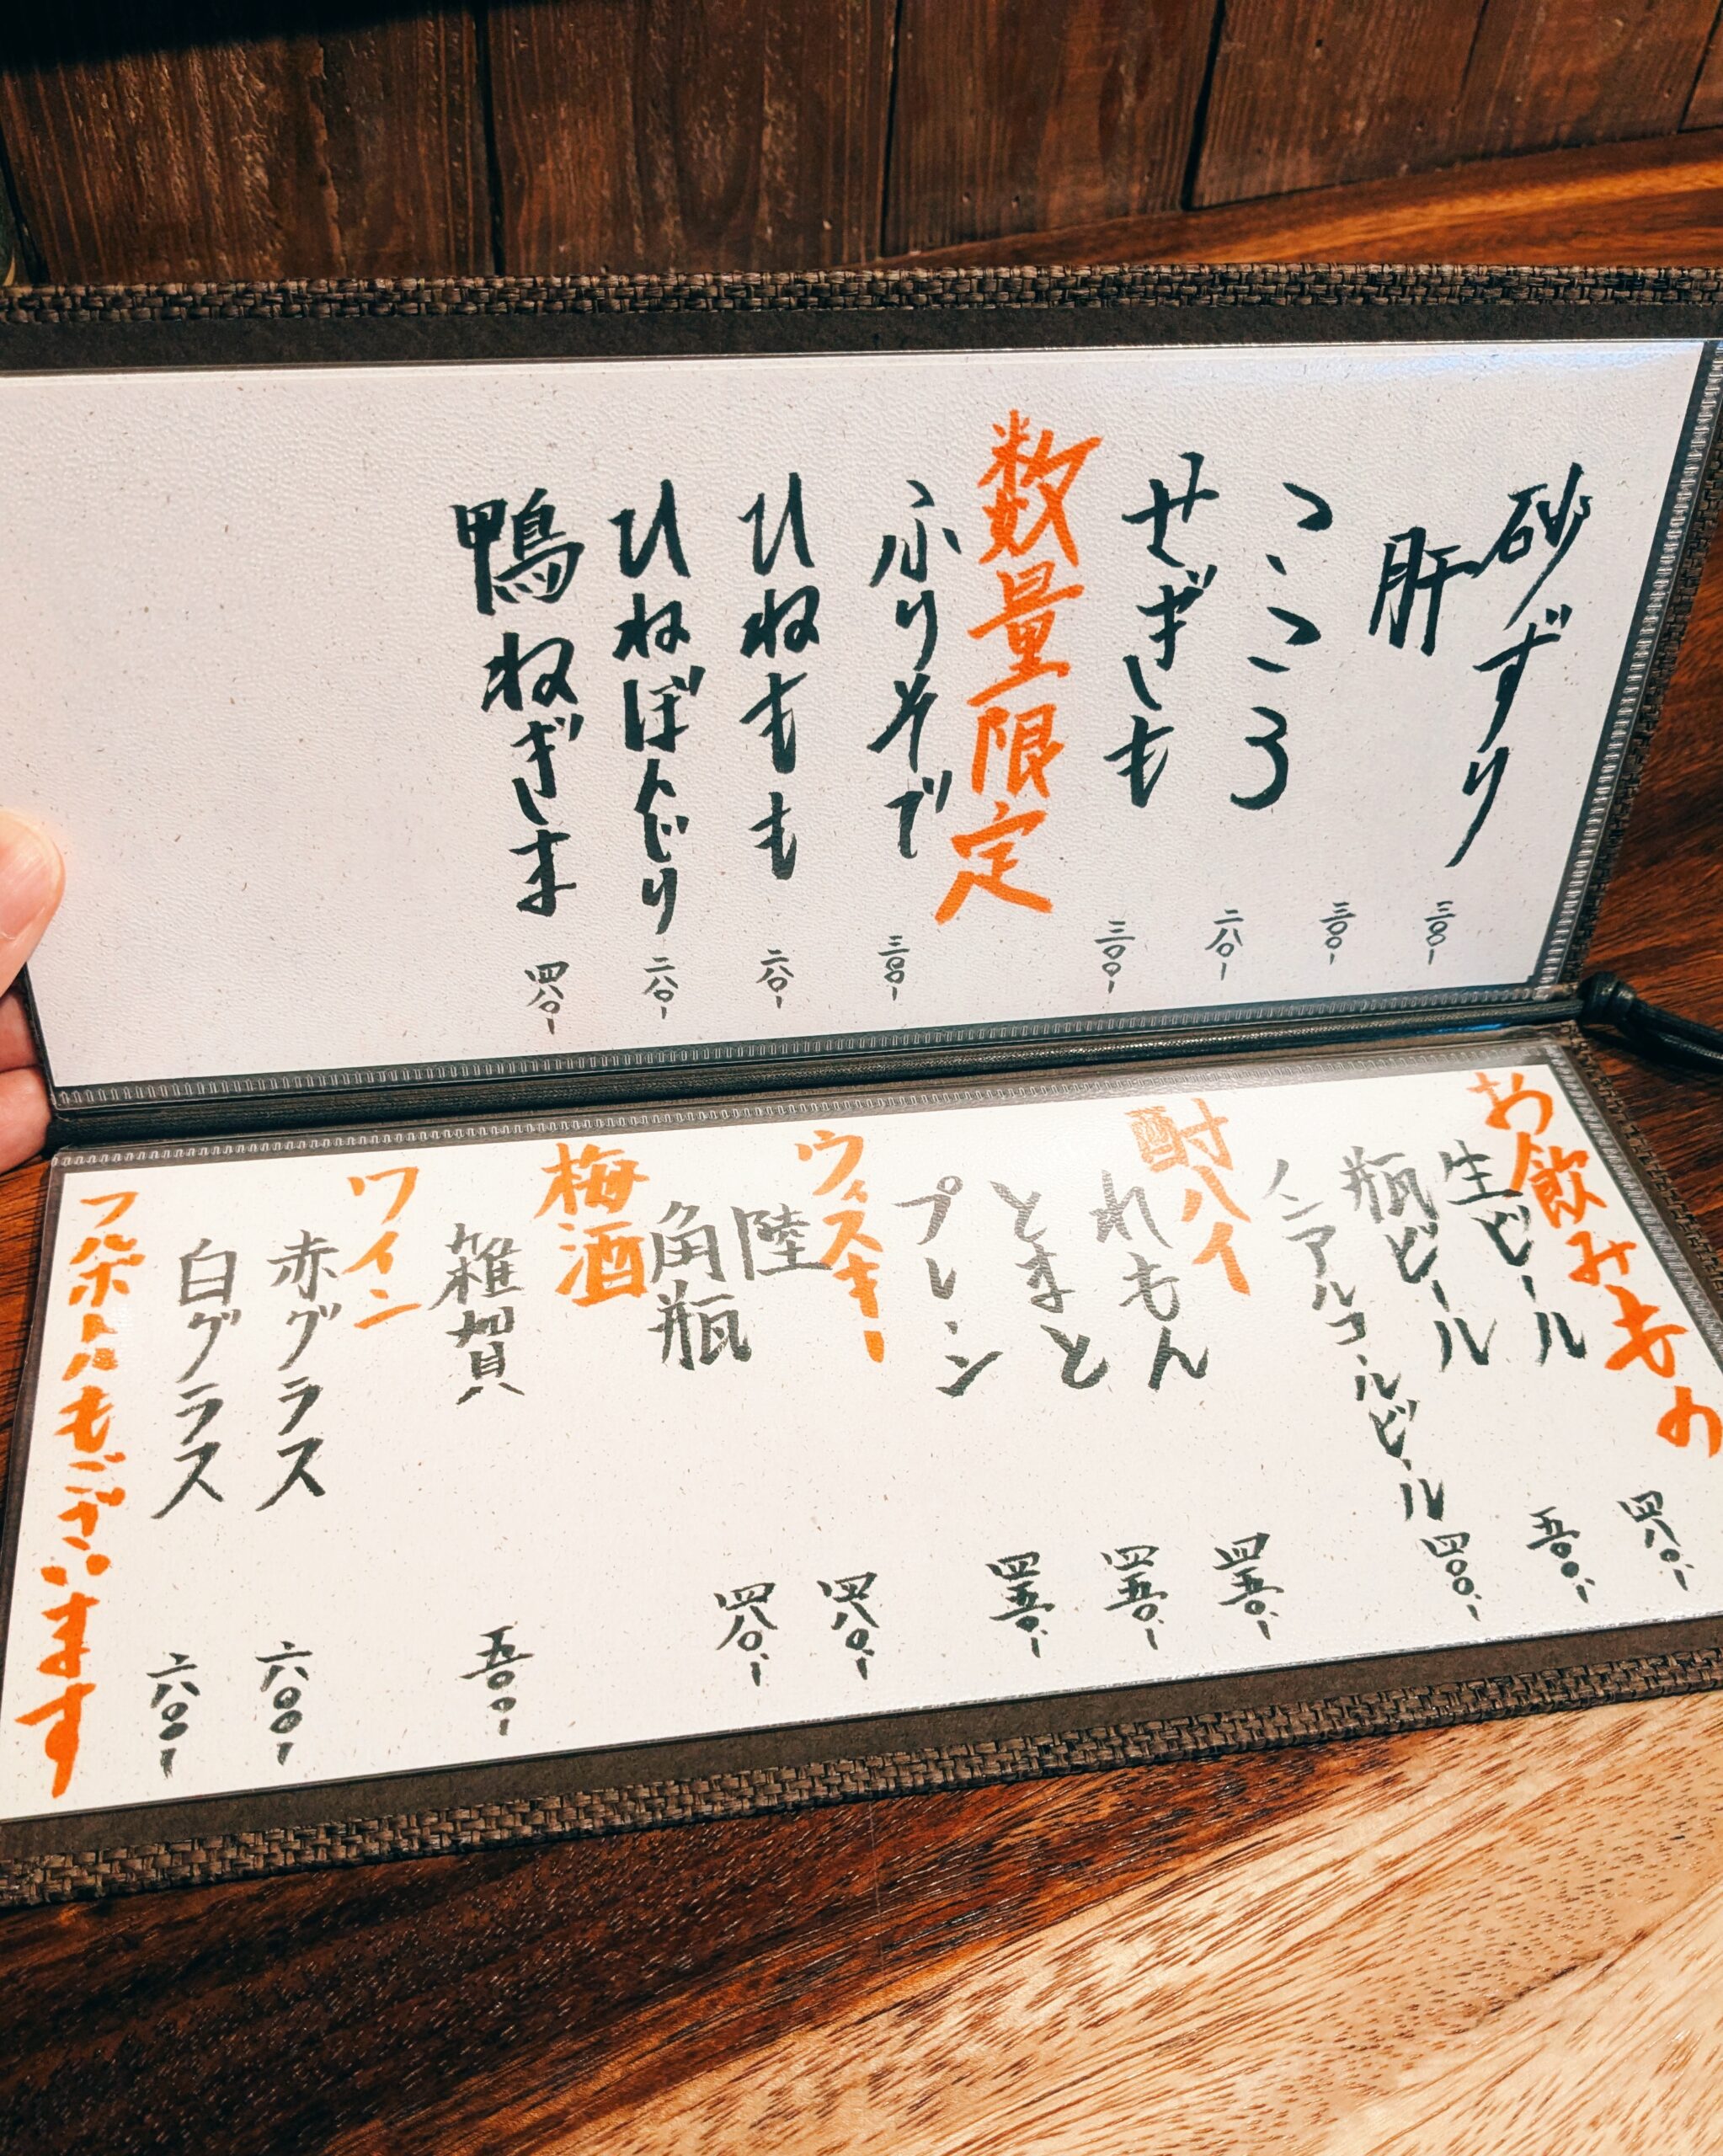 砂ずり 三〇〇-
肝 三〇〇-
こころ 二八〇-
せぎも 三〇〇-
数量限定
ふりそで 三〇〇-
ひねもも 二八〇-
ひねぼんじり 二八〇-
鴨ねぎま 四八〇-
お飲みもの
生ビール 四八〇-
瓶ビール 五〇〇-
ノンアルコールビール 四〇〇-
酎ハイ
れもん 四五〇-
とまと 四五〇-
プレーン 四五〇-
ウィスキー
陸 四八〇-
角瓶 四八〇-
梅酒
雑賀 五〇〇-
ワイン
赤グラス 六〇〇-
白グラス 六〇〇-
フルボトルもございます